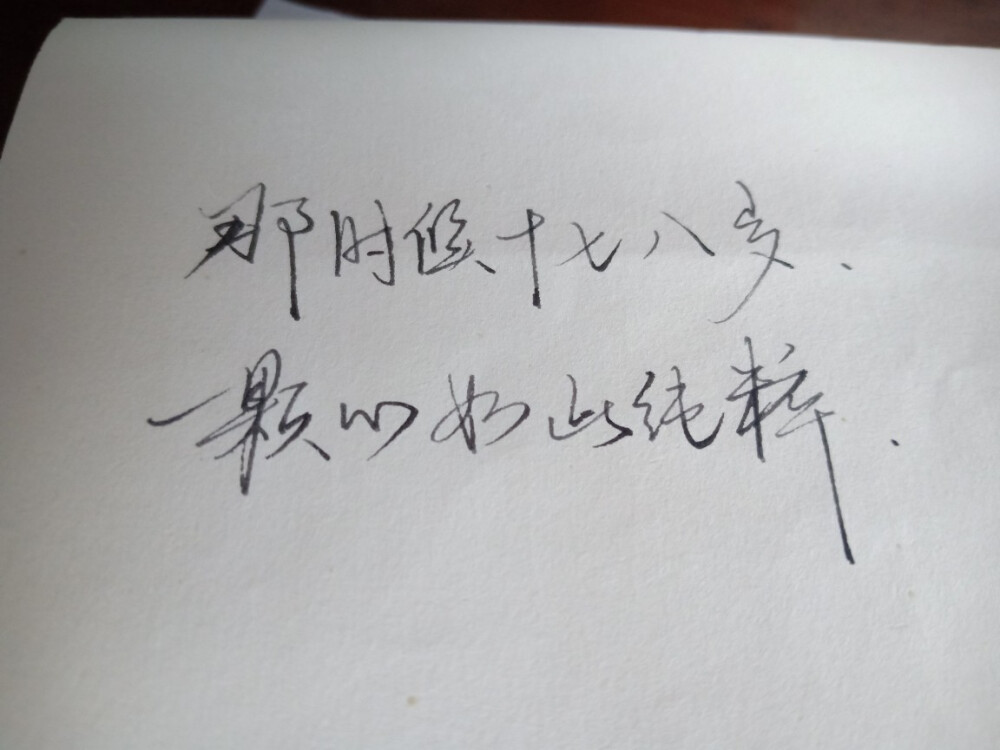 那时候十七八岁.
一颗心如此纯粹.